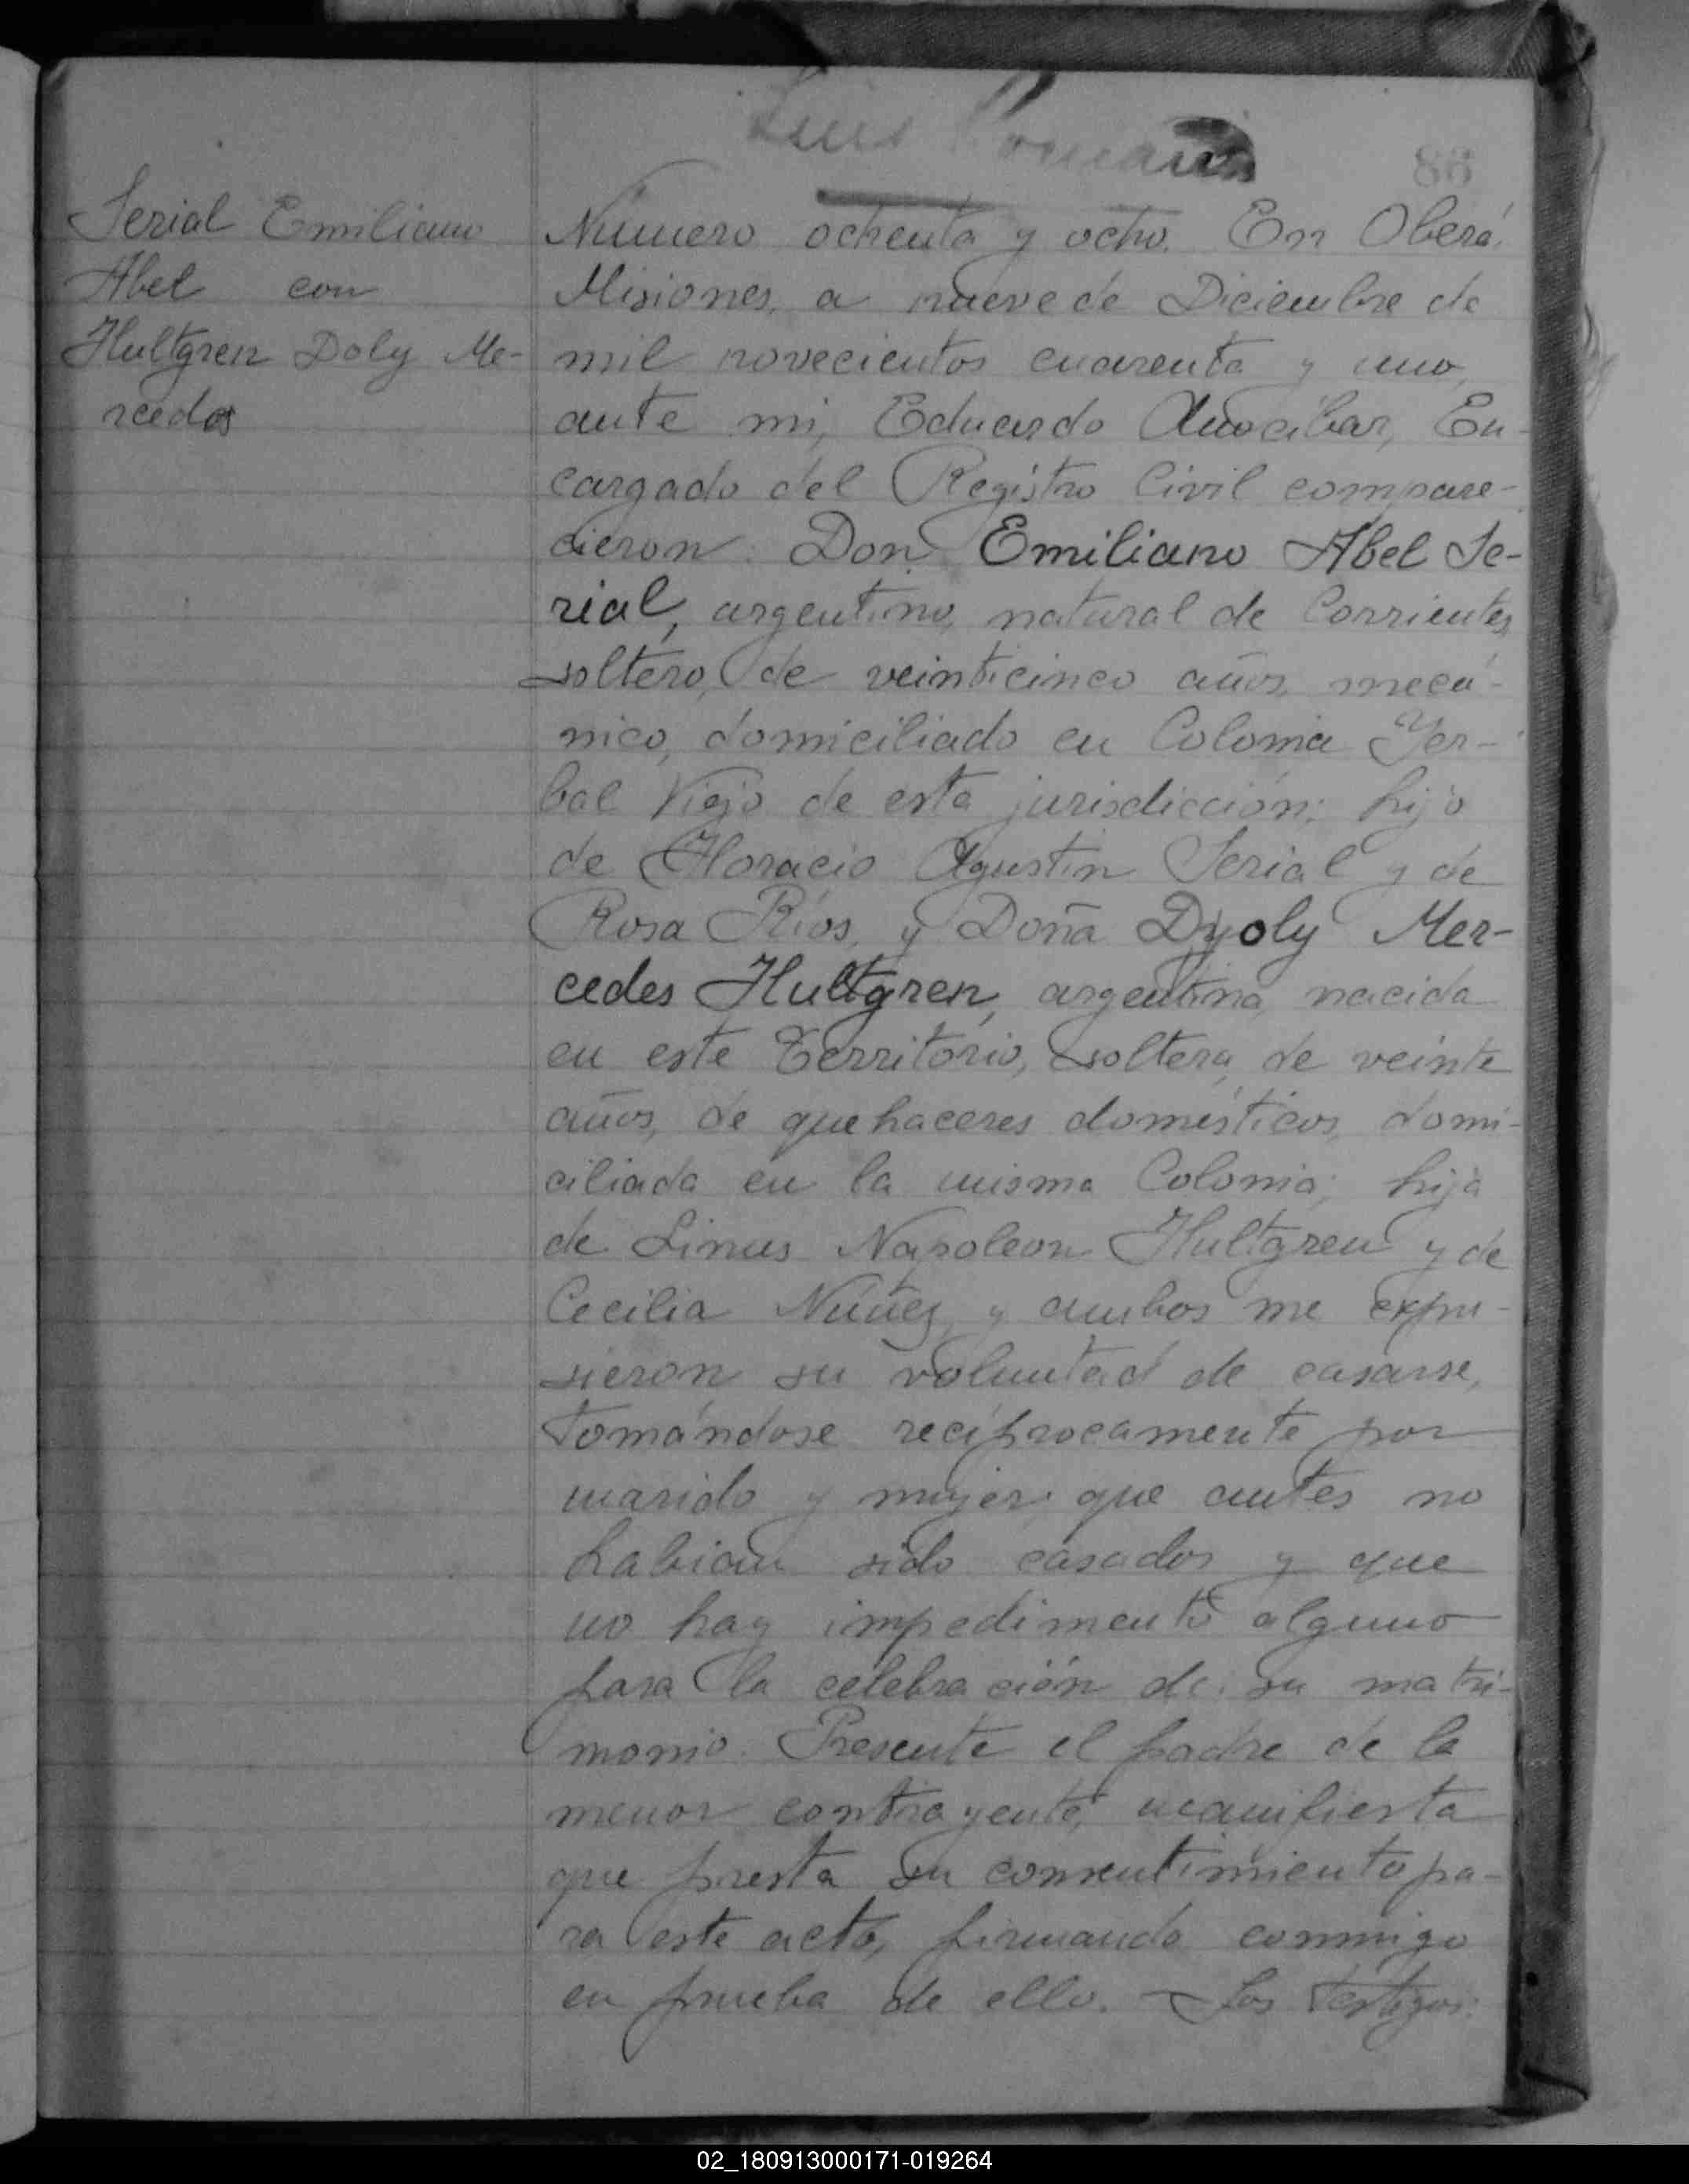 Luis Roman
86
Serial Emiliano
Abel con
Hultgren Doly Me-
rcedes
Número ochenta y ocho. En Oberá,
Misiones, a nueve de Diciembre de
mil novecientos cuarenta y uno,
ante mi, Eduardo Amocibar, En-
cargado del Registro Civil compare-
cieron: Don Emiliano Abel Se-
rial, argentino, natural de Corrientes,
soltero, de veinticinco años, mecá-
nico, domiciliado en Colonia Yer-
bal Viejo de esta jurisdicción; hijo
de Horacio Agustín Serial y de
Rosa Ríos, y Doña Dyoly Mer-
cedes Hultgren, argentina, nacida
en este Territorio, soltera, de veinte
años, de quehaceres domésticos, domi-
ciliada en la misma Colonia; hija
de Linus Napoleon Hultgren y de
Cecilia Núñez, y ambos me expu-
sieron su voluntad de casarse,
tomándose recíprocamente por
marido y mujer; que antes no
habian sido casados y que
no hay impedimento alguno
para la celebración de su matri-
monio. Presente el padre de la
menor contrayente, manifiesta
que presta su consentimiento pa-
ra este acto, firmando conmigo
en prueba de ello. Los testigos:
02_180913000171-019264